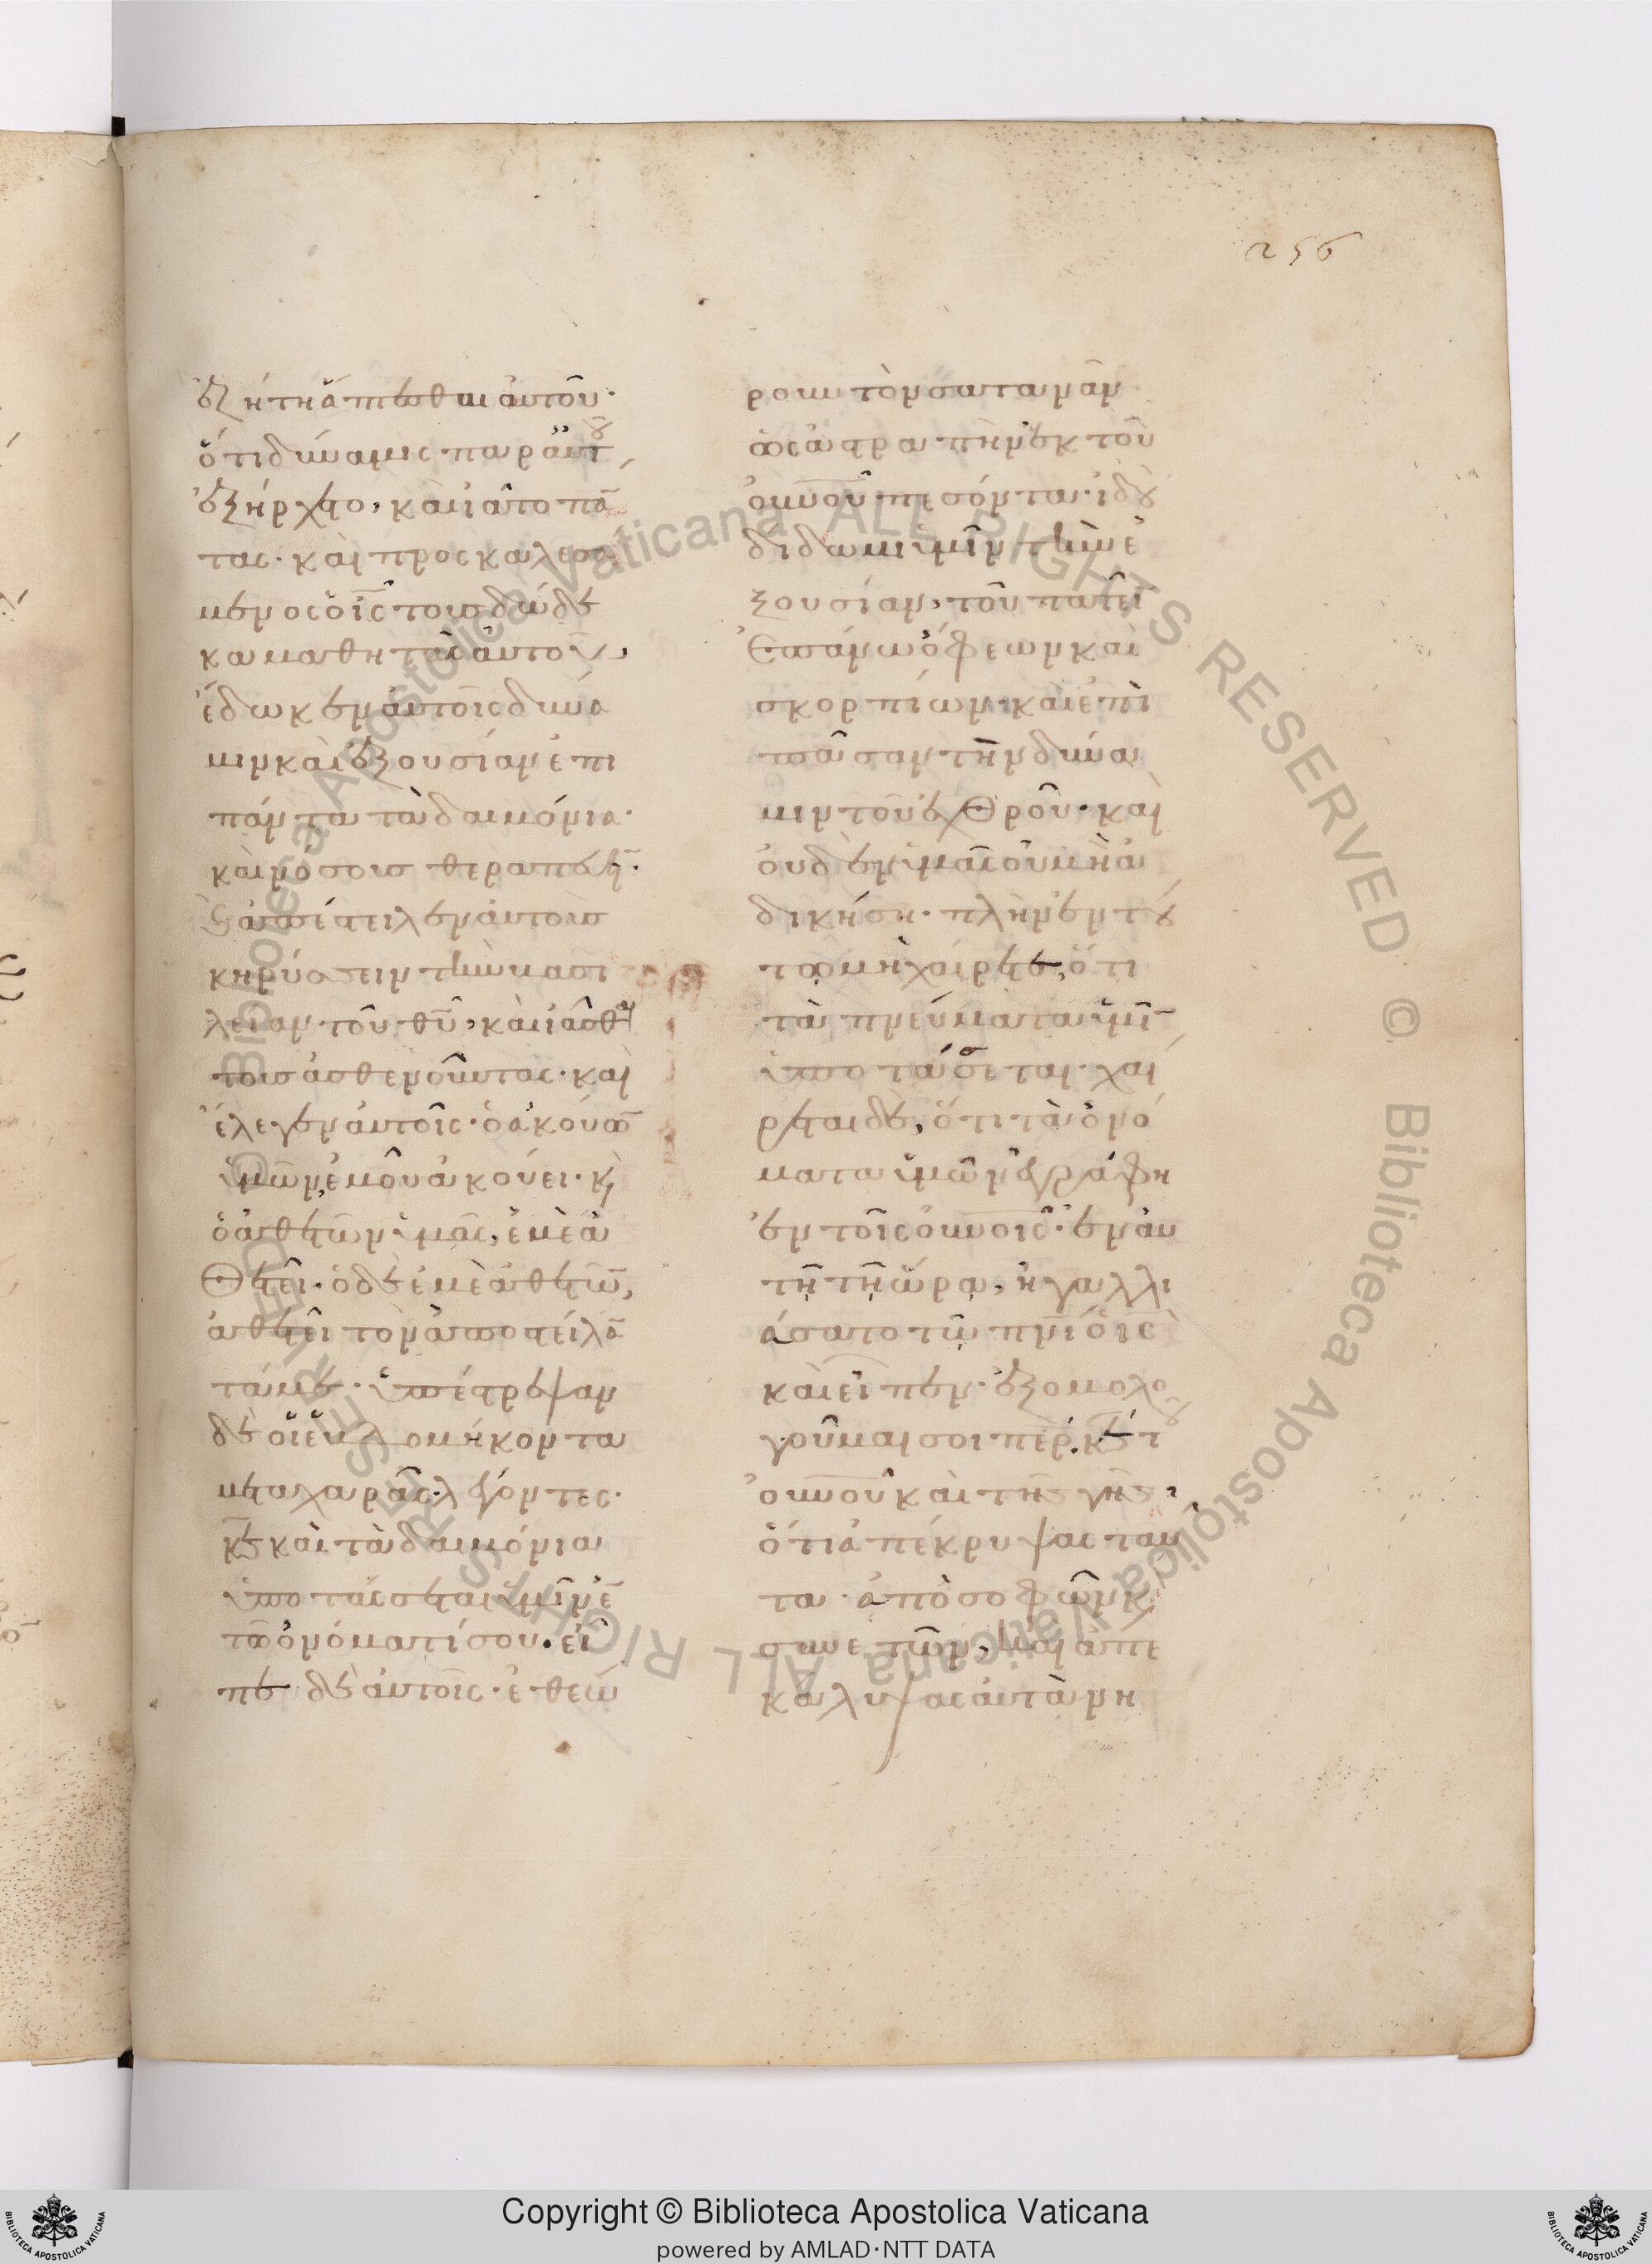 256
ἐζήτη ἅπτεσθαι αὐτοῦ·
ὅτι δύναμις παρ αὐτοῦ
ἐξήρχετο, καὶ ἰᾶτο πᾶ
τας· καὶ προσκαλεσα
μενος ὁ ις τοὺς δώδε
κα μαθητὰς αὐτοῦ,
ἔδωκεν αὐτοῖς δύνα
μιν καὶ ἐξουσίαν ἐπι
πάντα τὰ δαιμόνια·
καὶ νόσους θεραπεύειν·
καὶ ἀπέστειλεν αὐτοὺς
κηρύσσειν τὴν βασι
λείαν τοῦ θυ, καὶ ἰᾶσθαι
τοὺς ἀσθενοῦντας· καὶ
ἔλεγεν αὐτοῖς· ὁ ἀκούων
ὑμῶν, ἐμοῦ ἀκούει· κ
ὁ ἀθετῶν ὑμᾶς, ἐμὲ ἀ
θετεῖ· ὁ δὲ ἐμὲ ἀθετῶν,
ἀθετεῖ τὸν ἀποστείλαν
τά με· ὑπέστρεψαν
δὲ οἱ ἑβδομήκοντα
μετα χαρᾶς λέγοντες·
κε καὶ τὰ δαιμόνια
ὑποτάσσεται ἡμῖν ἐν
τῶ ὀνόματί σου· εἶ
πε δὲ αὐτοῖς· ἐθεώ
ρουν τὸν σαταναν
ὡς ἀστραπὴν ἐκ τοῦ
οὐνοῦ πεσόντα· ἰδοὺ
δίδωμι ὑμῖν τὴν ἐ
ξουσίαν, τοῦ πατεῖν
ἐπάνω ὄφεων καὶ
σκορπίων· καὶ ἐπὶ
πᾶσαν τὴν δύνα
μιν τοῦ ἐχθροῦ· καὶ
οὐδὲν ὑμᾶς οὐ μὴ ἀ
δικήση· πλὴν ἐν τού
τω μὴ χαίρετε, ὅτι
τὰ πνεύματα ὑμῖν
ὑποτάσσεται· χαί
ρεται δὲ, ὅτι τὰ ὀνό
ματα ὑμῶν ἐγράφη
ἐν τοῖς οὐνοῖς· ἐν αὐ
τῆ τῆ ὥρα, ἠγαλλι
άσατο τῶ πνι ὁ ις
καὶ εἶπεν· ἐξομολο
γοῦμαι σοι περ κε τοῦ
οὐνοῦ καὶ τῆς γῆς,
ὅτι ἀπέκρυψας ταῦ
τα ἀπὸ σοφῶν κ
συνετῶν, καὶ ἀπε
κάλυψας αὐτὰ νη
Copyright © Biblioteca Apostolica Vaticana
powered by AMLAD·NTT DATA